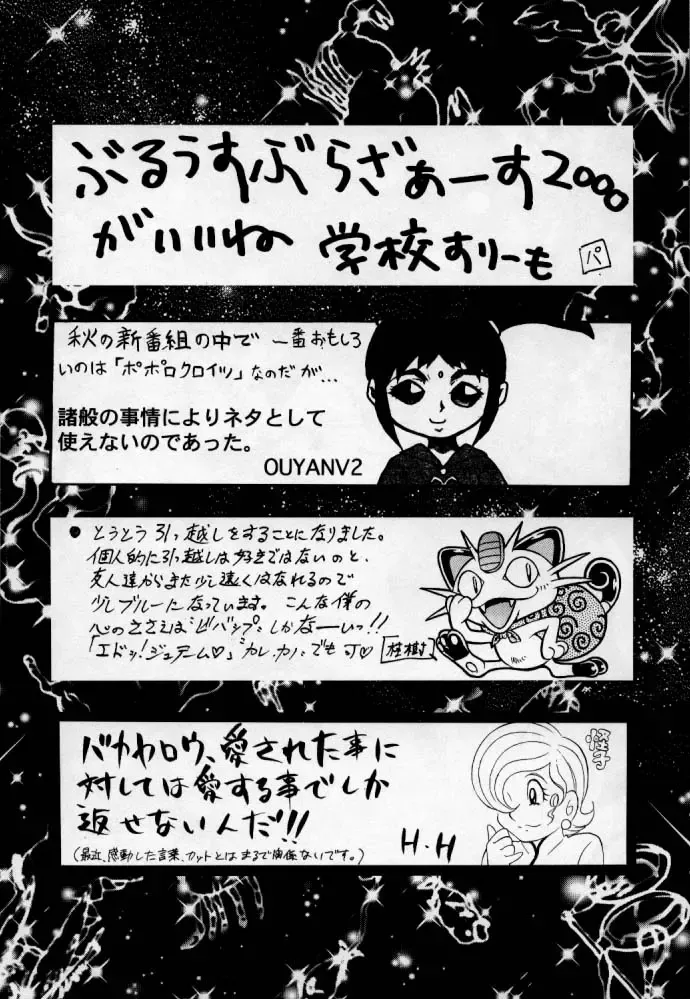 ぶるうすぶらざぁーす2000
がいいね 学校すりーも パ
秋の新番組の中で一番おもしろ
いのは「ポポロクロイツ」なのだが…
諸般の事情によりネタとして
使えないのであった。
OUYANV2
●とうとう引っ越しをすることになりました。
個人的に引っ越しは好きではないのと、
友人達からまた少し遠くはなれるので
少しブルーになっています。こんな僕の
心のささえは“ビバップ”しかなーいっ!!
「エドッ!ジュテーム♡」“カレカノ”でも可♡
桂樹
バカヤロウ、愛された事に
対しては愛する事でしか
返せないんだ!!
(最近、感動した言葉、カットとはまるで関係ないです。)
H.H
怪子